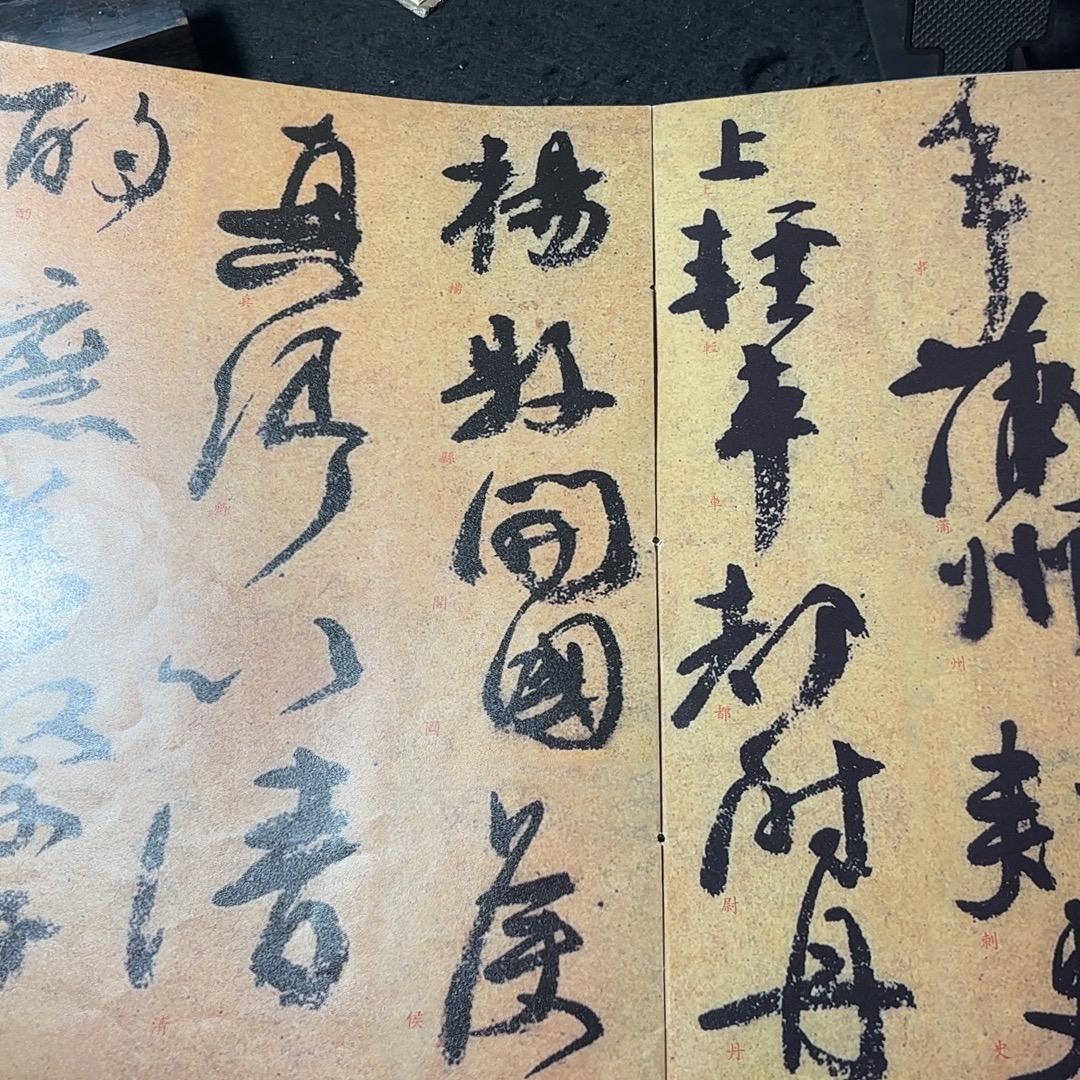 事蒲州刺史
上輕車都尉丹
楊縣開國侯
真卿以清
酌庶羞祭于